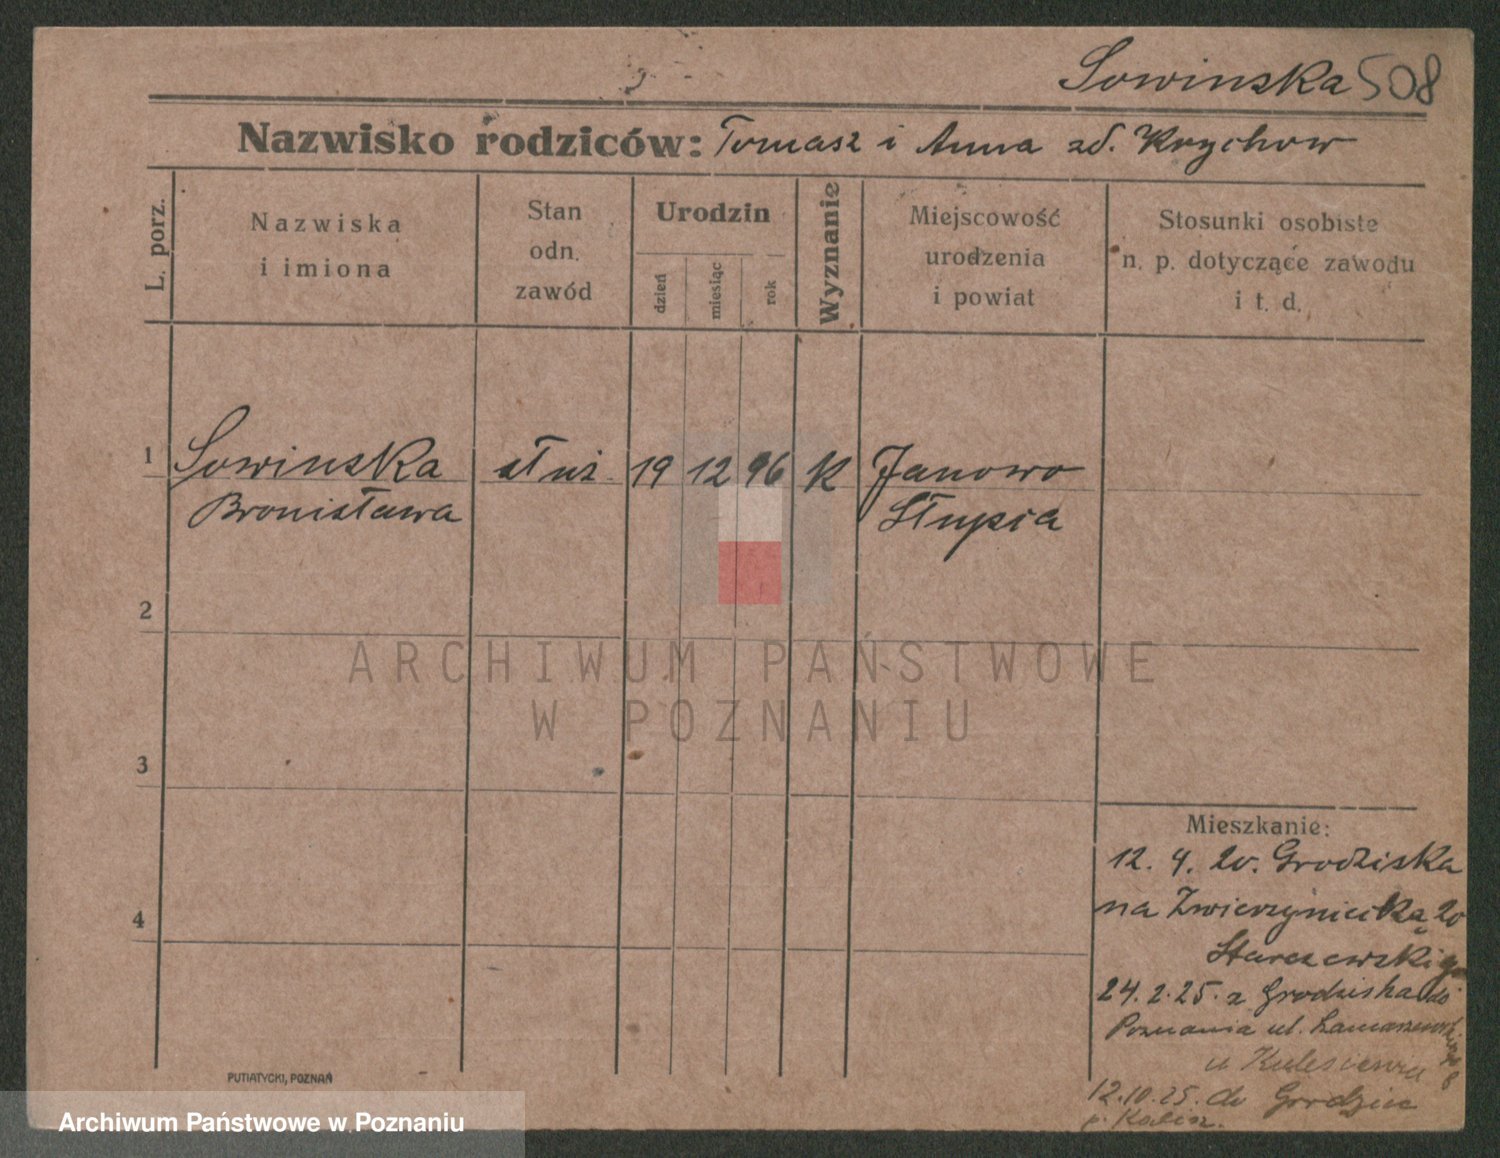 Sowinska 508
Nazwisko rodziców: Tomasz i Anna zd. Krychow
L. porz.
Nazwiska
i imiona
Stan
odn.
zawód
Urodzin
dzień
miesiąc
rok
Wyznanie
Miejscowość
urodzenia
i powiat
Stosunki osobiste
n. p. dotyczące zawodu
i t. d.
1 Sowinska służ. 19 12 96 K Janowo
Bronisława Słupia
2
3
4
ARCHIWUM PAŃSTWOWE
W POZNANIU
Mieszkanie:
12. 4. 20. Grodziska
na Zwierzyniecką 20
24. 2. 25. z Grodziska do
Poznania ul.
u
12.10.25. do Grodziec
p. Kalisz.
PUTIATYCKI, POZNAŃ
Archiwum Państwowe w Poznaniu